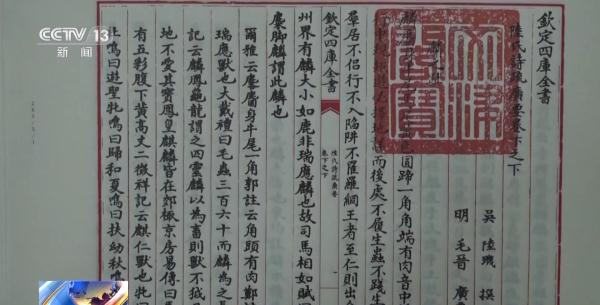 CCTV 13
新闻
欽定四庫全書
陸氏詩疏廣要卷下之下
吳 陸璣 撰
明 毛晉 廣
色圓蹄一角角端有肉音中
而後處不履生蟲不踐生
羣居不侶行不入陷阱不罹羅網王者至仁則出
州界有麟大小如鹿非瑞應麟也故司馬相如賦
麋脚麟謂此麟也
欽定四庫全書
陸氏詩疏廣要
卷下之下
爾雅云麐麕身牛尾一角郭註云角頭有肉
瑞應獸也大戴禮曰毛蟲三百六十而麟為之
記云麟鳳龜龍謂之四靈麟以為畜則獸不狘
地不愛其寶鳳皇麒麟皆在郊棷京房易傳曰
有五彩腹下黃高丈二徵祥記云麒仁獸也牡
牡鳴曰遊聖牝鳴曰歸和夏鳴曰扶幼秋鳴